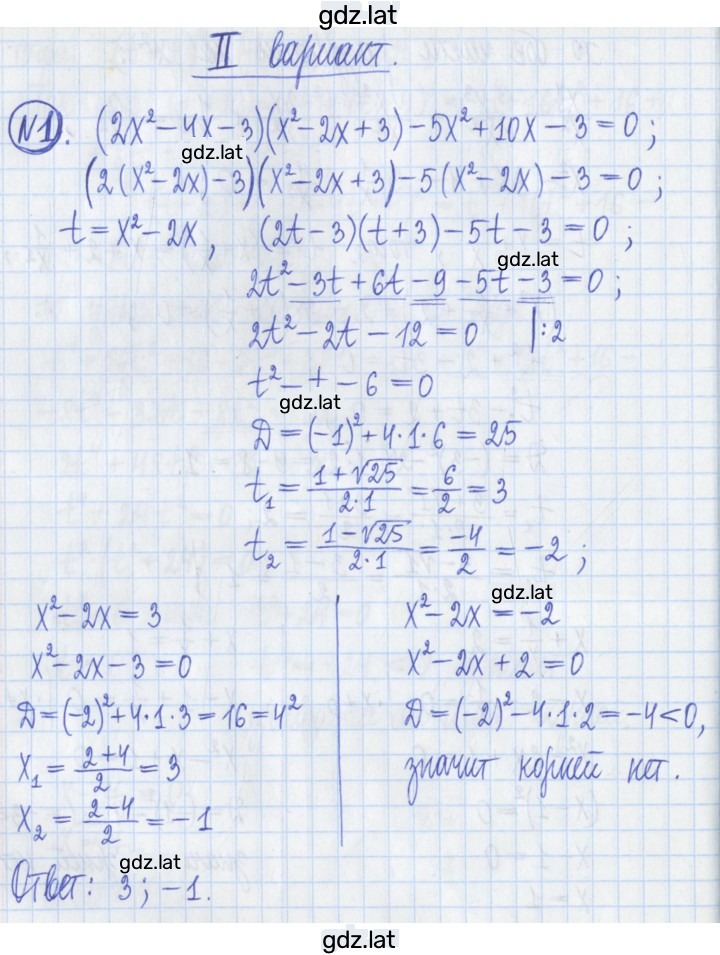 gdz.lat
II вариант.
№1. (2x² – 4x – 3)(x² – 2x + 3) – 5x² + 10x – 3 = 0;
gdz.lat
(2(x² – 2x) – 3)(x² – 2x + 3) – 5(x² – 2x) – 3 = 0;
t = x² – 2x, (2t – 3)(t + 3) – 5t – 3 = 0;
gdz.lat
2t² – 3t + 6t – 9 – 5t – 3 = 0;
2t² – 2t – 12 = 0 |:2
t² – t – 6 = 0
gdz.lat
D = (–1)² + 4·1·6 = 25
t₁ = (1 + √25)/(2·1) = 6/2 = 3
t₂ = (1 – √25)/(2·1) = –4/2 = –2;
x² – 2x = 3
x² – 2x – 3 = 0
D = (–2)² + 4·1·3 = 16 = 4²
x₁ = (2 + 4)/2 = 3
x₂ = (2 – 4)/2 = –1
gdz.lat
x² – 2x = –2
x² – 2x + 2 = 0
D = (–2)² – 4·1·2 = –4 < 0,
значит корней нет.
gdz.lat
Ответ: 3; –1.
gdz.lat